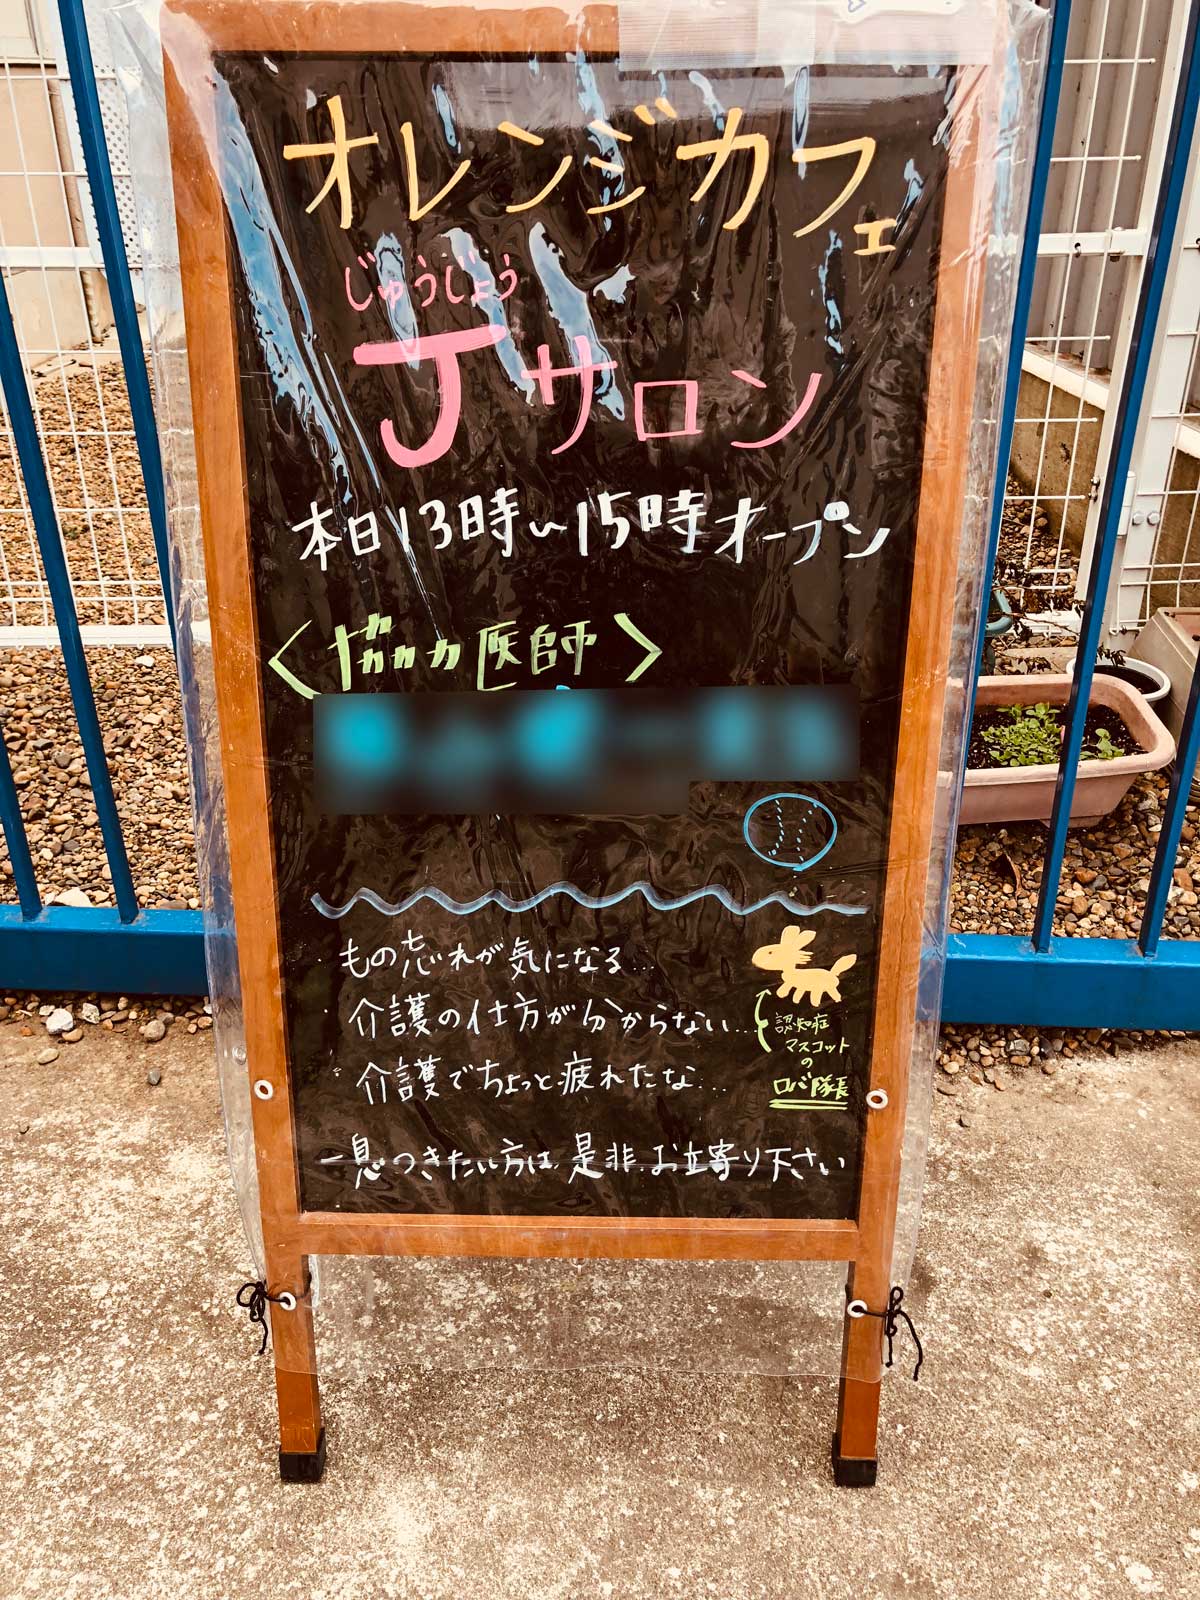 オレンジカフェ
じゅうじょう
Jサロン
本日13時〜15時オープン
医師〉
もの忘れが気になる…
介護の仕方が分からない…
介護でちょっと疲れたな…
認知症
マスコット
の
ロバ隊長
一息つきたい方は、是非お立寄り下さい